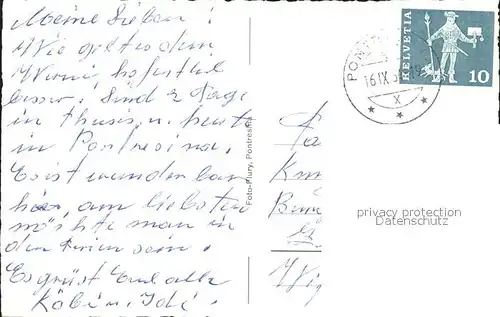 Meine Lieben!
Wie geht es dem
Werni, hofentlich
besser. Sind 2 Tage
in Thusis u. heute
in Pontresina.
Es ist wunderbar
hier, am liebsten
möchte man in
den Ferien sein.
Es grüst Euch alle
Köbi u. Idi.
Foto-Flury, Pontresina
HELVETIA
10
PONT
16.IX
X
Fa
Bun
privacy protection
Datenschutz
Wi